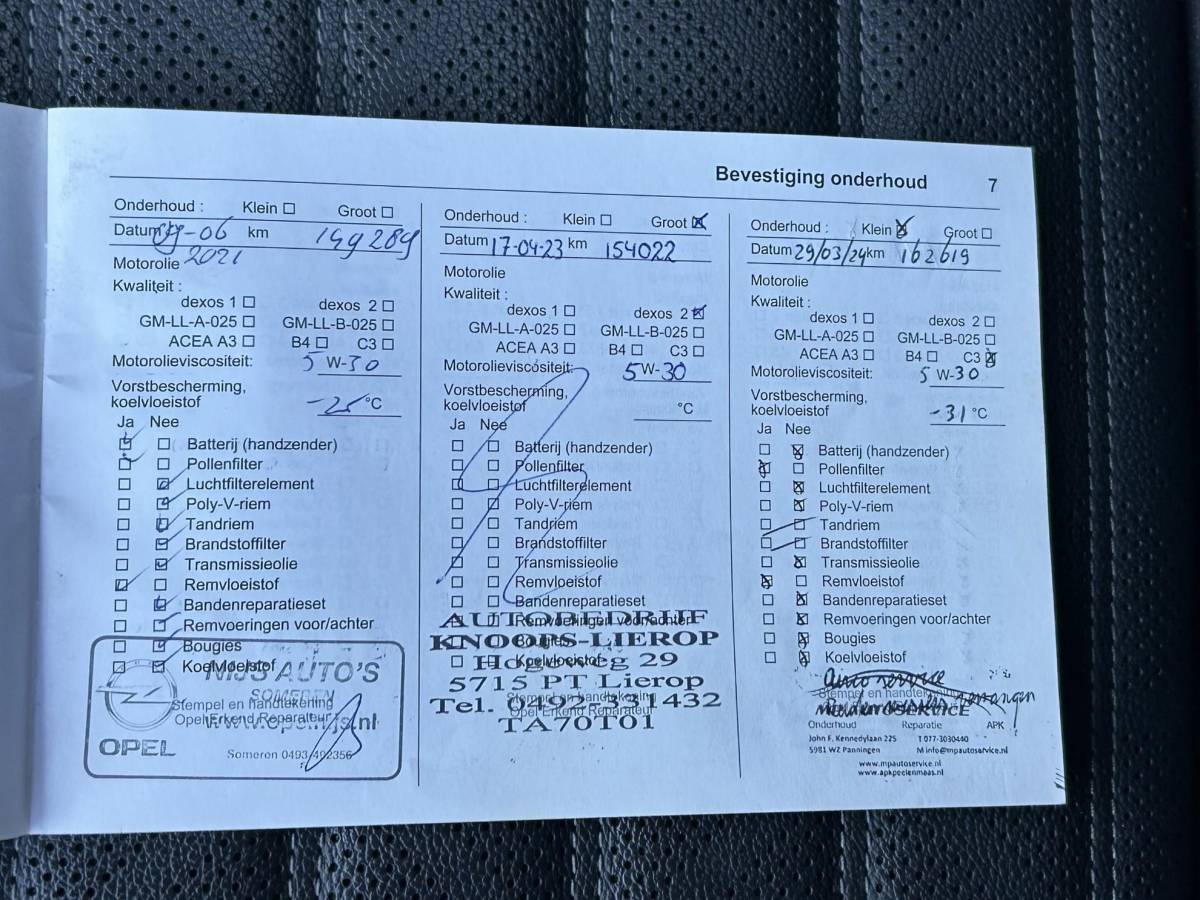 Bevestiging onderhoud 7
Onderhoud : Klein ☐ Groot ☐
Datum 09-06 km 149289
2021
Motorolie
Kwaliteit :
dexos 1 ☐ dexos 2 ☐
GM-LL-A-025 ☐ GM-LL-B-025 ☐
ACEA A3 ☐ B4 ☐ C3 ☐
Motorolieviscositeit: 5 W-30
Vorstbescherming,
koelvloeistof -25 °C
Ja Nee
Batterij (handzender)
Pollenfilter
Luchtfilterelement
Poly-V-riem
Tandriem
Brandstoffilter
Transmissieolie
Remvloeistof
Bandenreparatieset
Remvoeringen voor/achter
Bougies
Koelvloeistof
NIJS AUTO'S
SOMEREN
Stempel en handtekening
Opel Erkend Reparateur
www.opelnijs.nl
OPEL
Someren 0493-492356
Onderhoud : Klein ☐ Groot ☒
Datum 17-04-23 km 154022
Motorolie
Kwaliteit :
dexos 1 ☐ dexos 2 ☒
GM-LL-A-025 ☐ GM-LL-B-025 ☐
ACEA A3 ☐ B4 ☐ C3 ☐
Motorolieviscositeit: 5 W-30
Vorstbescherming,
koelvloeistof °C
Ja Nee
Batterij (handzender)
Pollenfilter
Luchtfilterelement
Poly-V-riem
Tandriem
Brandstoffilter
Transmissieolie
Remvloeistof
Bandenreparatieset
Remvoeringen voor/achter
AUTOBEDRIJF
Bougies
KNOOPS-LIEROP
Koelvloeistof
29
5715 PT Lierop
Stempel en handtekening
Tel. 0492-331432
Opel Erkend Reparateur
TA70T01
Onderhoud : Klein ☒ Groot ☐
Datum 29/03/24 km 162619
Motorolie
Kwaliteit :
dexos 1 ☐ dexos 2 ☐
GM-LL-A-025 ☐ GM-LL-B-025 ☐
ACEA A3 ☐ B4 ☐ C3 ☒
Motorolieviscositeit: 5 W-30
Vorstbescherming,
koelvloeistof -31 °C
Ja Nee
Batterij (handzender)
Pollenfilter
Luchtfilterelement
Poly-V-riem
Tandriem
Brandstoffilter
Transmissieolie
Remvloeistof
Bandenreparatieset
Remvoeringen voor/achter
Bougies
Koelvloeistof
Stempel en handtekening
Onderhoud Reparatie APK
John F. Kennedylaan 225 T 077-3030440
5981 WZ Panningen M info@mpautoservice.nl
www.mpautoservice.nl
www.apkpeelenmaas.nl